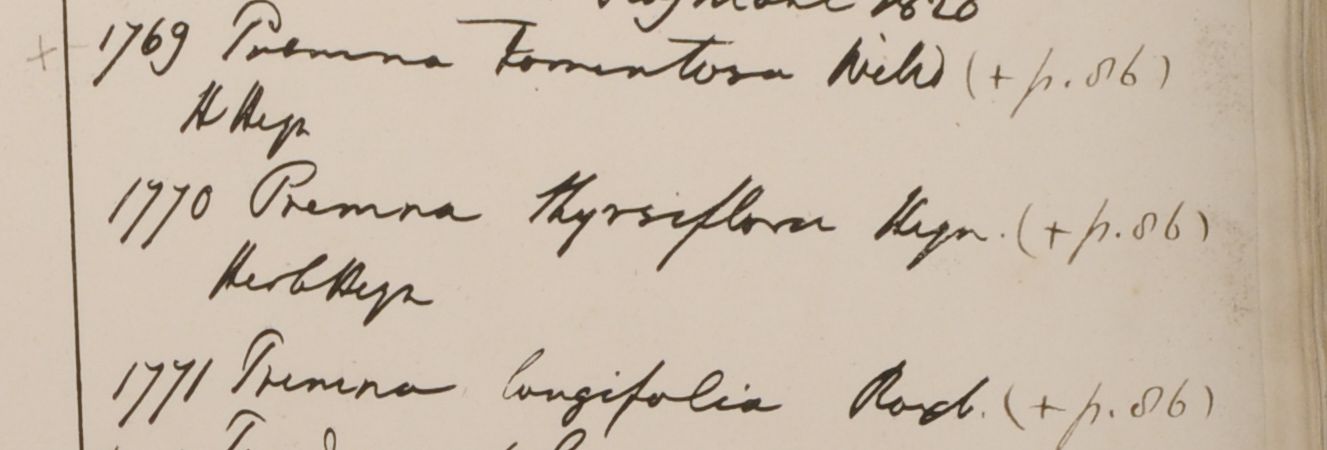 1820
1769 Premna tomentosa Willd (+ p. 86)
H Heyn
1770 Premna thyrsiflora Heyn. (+ p. 86)
Herb Heyn
1771 Premna longifolia Roxb. (+ p. 86)